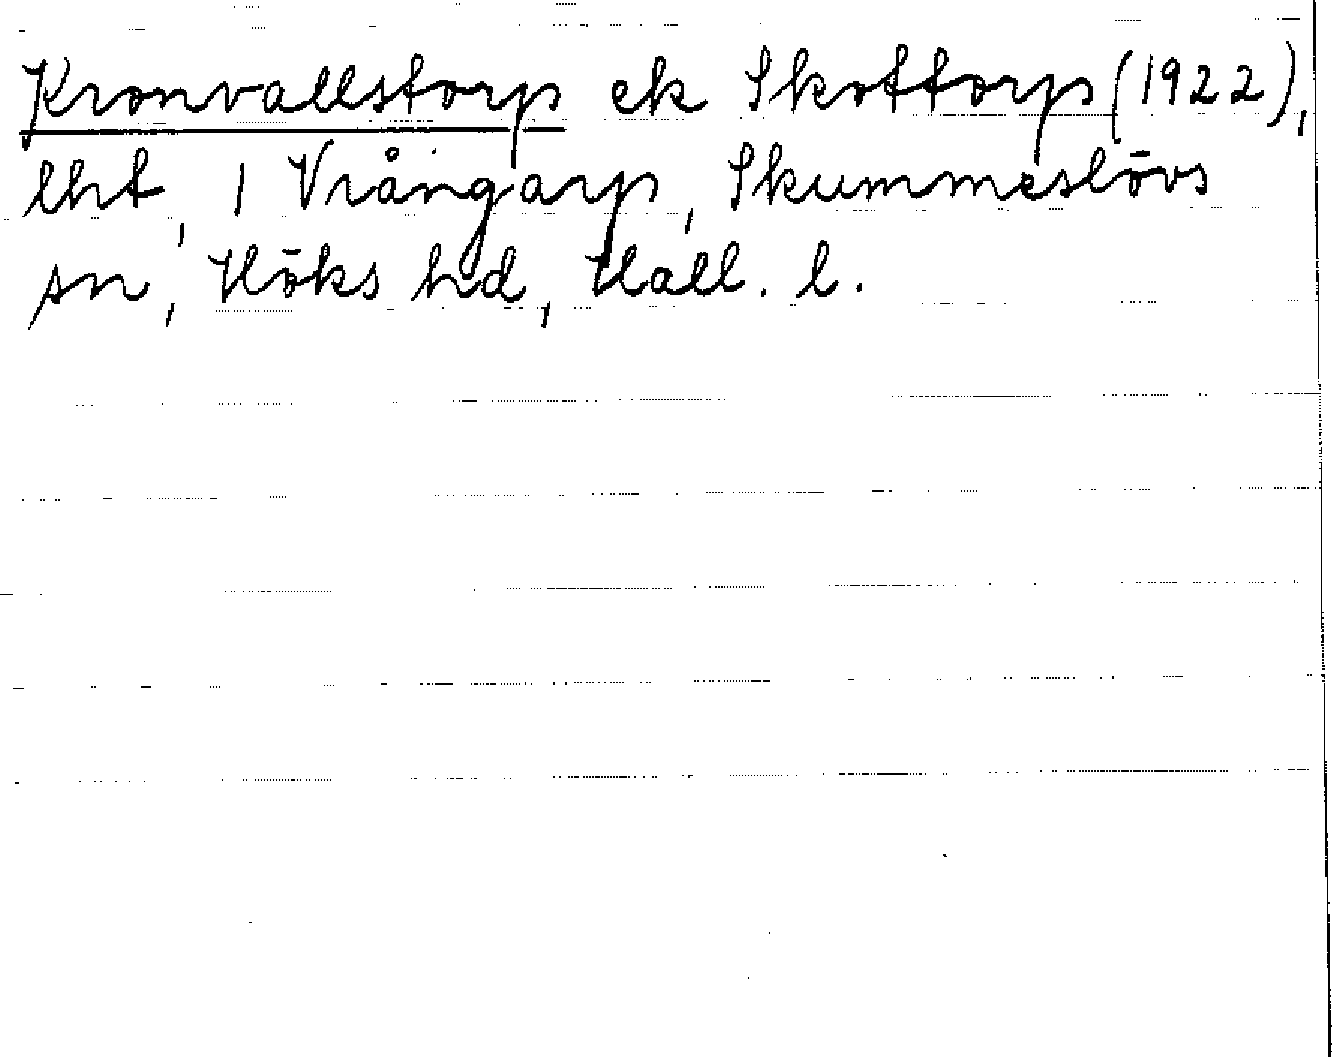 Kronvallstorp ek Skottorp (1922),
lht, 1 Vrångarp, Skummeslövs
sn, Höks hd, Hall. l.